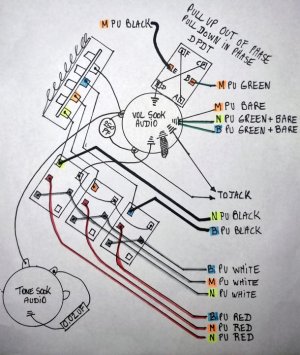 M PU BLACK
PULL UP OUT OF PHASE
PULL DOWN IN PHASE
DPDT
M PU GREEN
M PU BARE
N PU GREEN + BARE
B PU GREEN + BARE
VOL 500K
AUDIO
TO JACK
N PU BLACK
B PU BLACK
B PU WHITE
M PU WHITE
N PU WHITE
TONE 500K
AUDIO
B PU RED
M PU RED
N PU RED